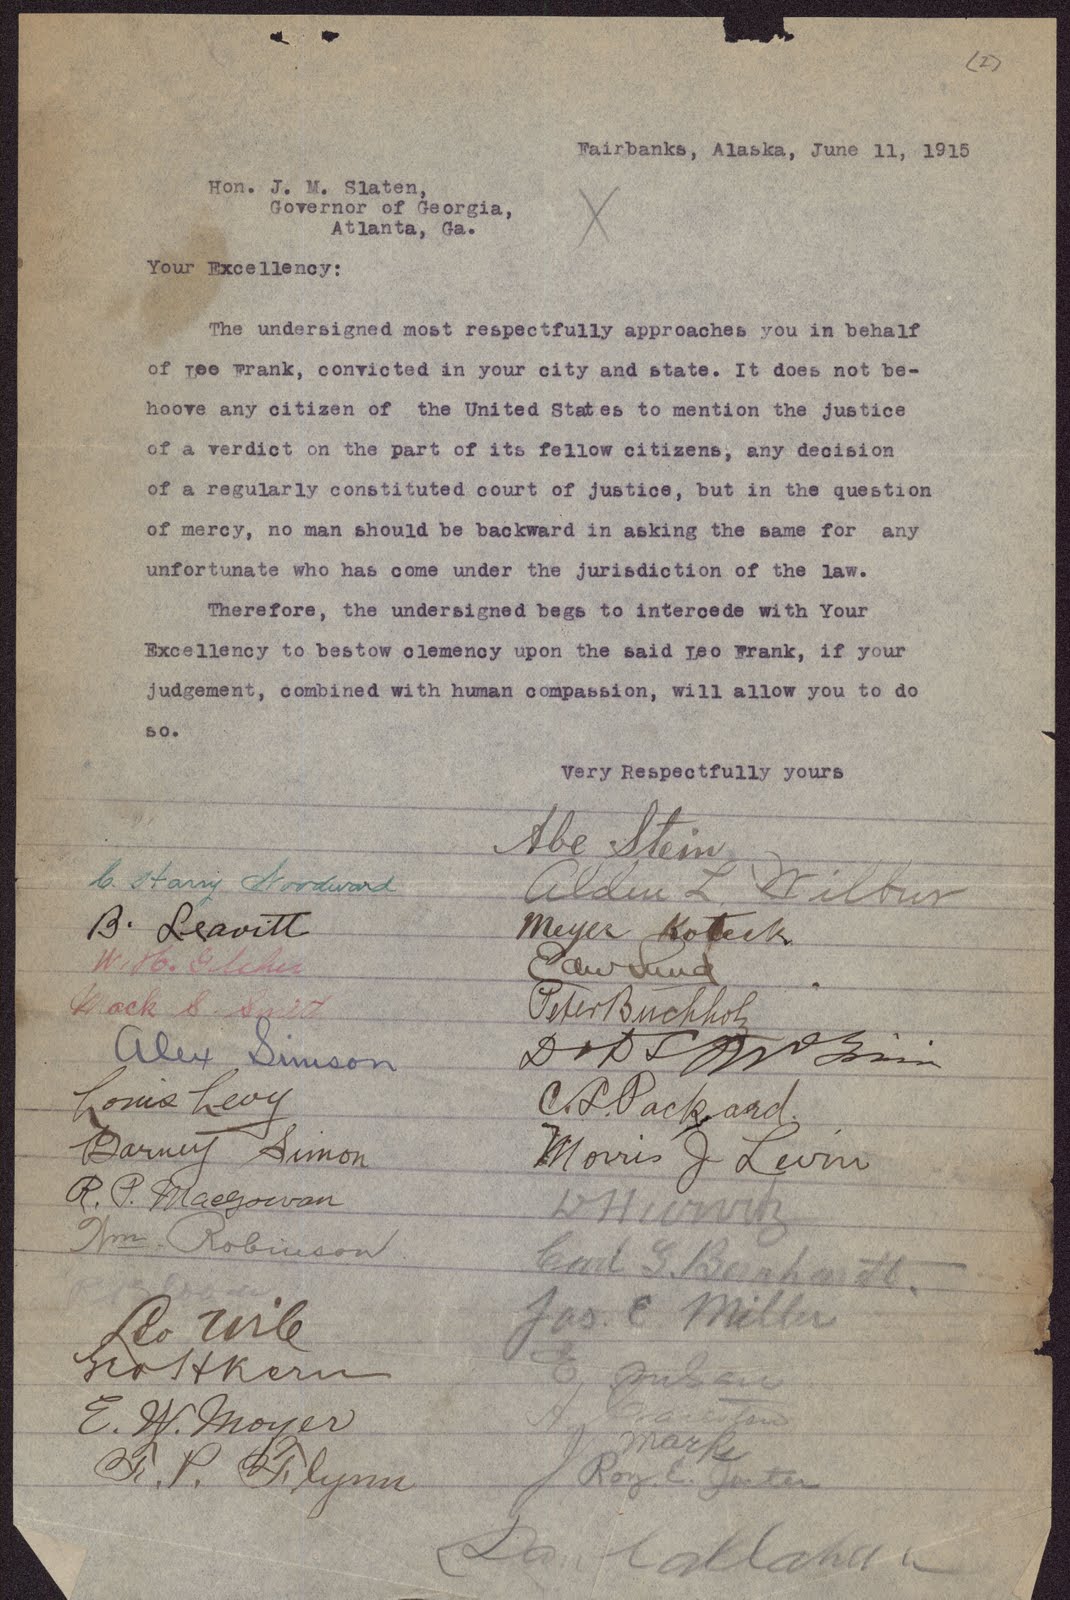 (2)
Fairbanks, Alaska, June 11, 1915
Hon. J. M. Slaten,
Governor of Georgia,
Atlanta, Ga.
X
Your Excellency:
The undersigned most respectfully approaches you in behalf
of Leo Frank, convicted in your city and state. It does not be-
hoove any citizen of the United States to mention the justice
of a verdict on the part of its fellow citizens, any decision
of a regularly constituted court of justice, but in the question
of mercy, no man should be backward in asking the same for any
unfortunate who has come under the jurisdiction of the law.
Therefore, the undersigned begs to intercede with Your
Excellency to bestow clemency upon the said Leo Frank, if your
judgement, combined with human compassion, will allow you to do
so.
Very Respectfully yours
Abe Stein
Alden L. Wilbur
Meyer Koteck
Peter Buchholz
C. L. Packard.
Morris J Levin
Hurwitz
Carl G. Bernhardt.
Jas. E Miller
E.
A.
Marks
J Roy. E.
Dan Callahan
C. Harry Woodward
B. Leavitt
W. H.
Mack S.
Alex Simson
Louis Levy
Barney Simon
R. P. Macgowan
Wm. Robinson
Geo H Kern
E. W. Moyer
F. P. Flynn